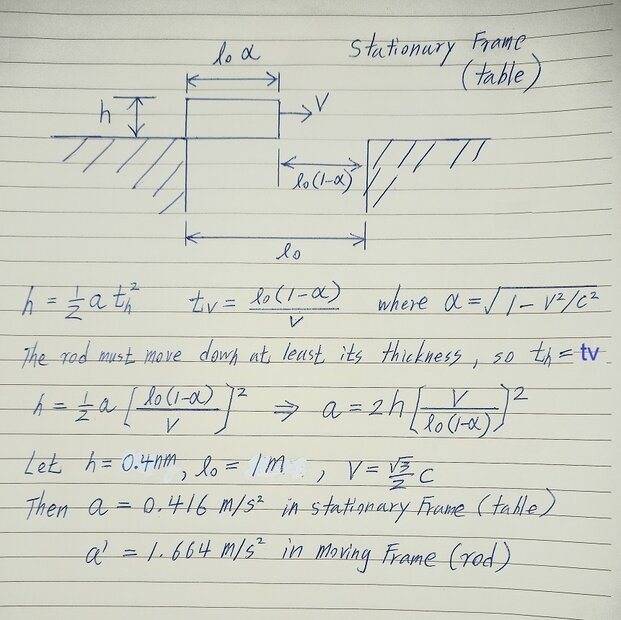 l₀ α
Stationary Frame
(table)
h
V
l₀(1-α)
l₀
h = ½ a tₕ² tᵥ = l₀(1-α)/V where α = √(1 - V²/C²)
The rod must move down at least its thickness, so tₕ = tv
h = ½ a [l₀(1-α)/V]² ⇒ a = 2h [V/l₀(1-α)]²
Let h = 0.4nm, l₀ = 1m, V = √3/2 C
Then a = 0.416 m/s² in stationary Frame (table)
a' = 1.664 m/s² in moving Frame (rod)